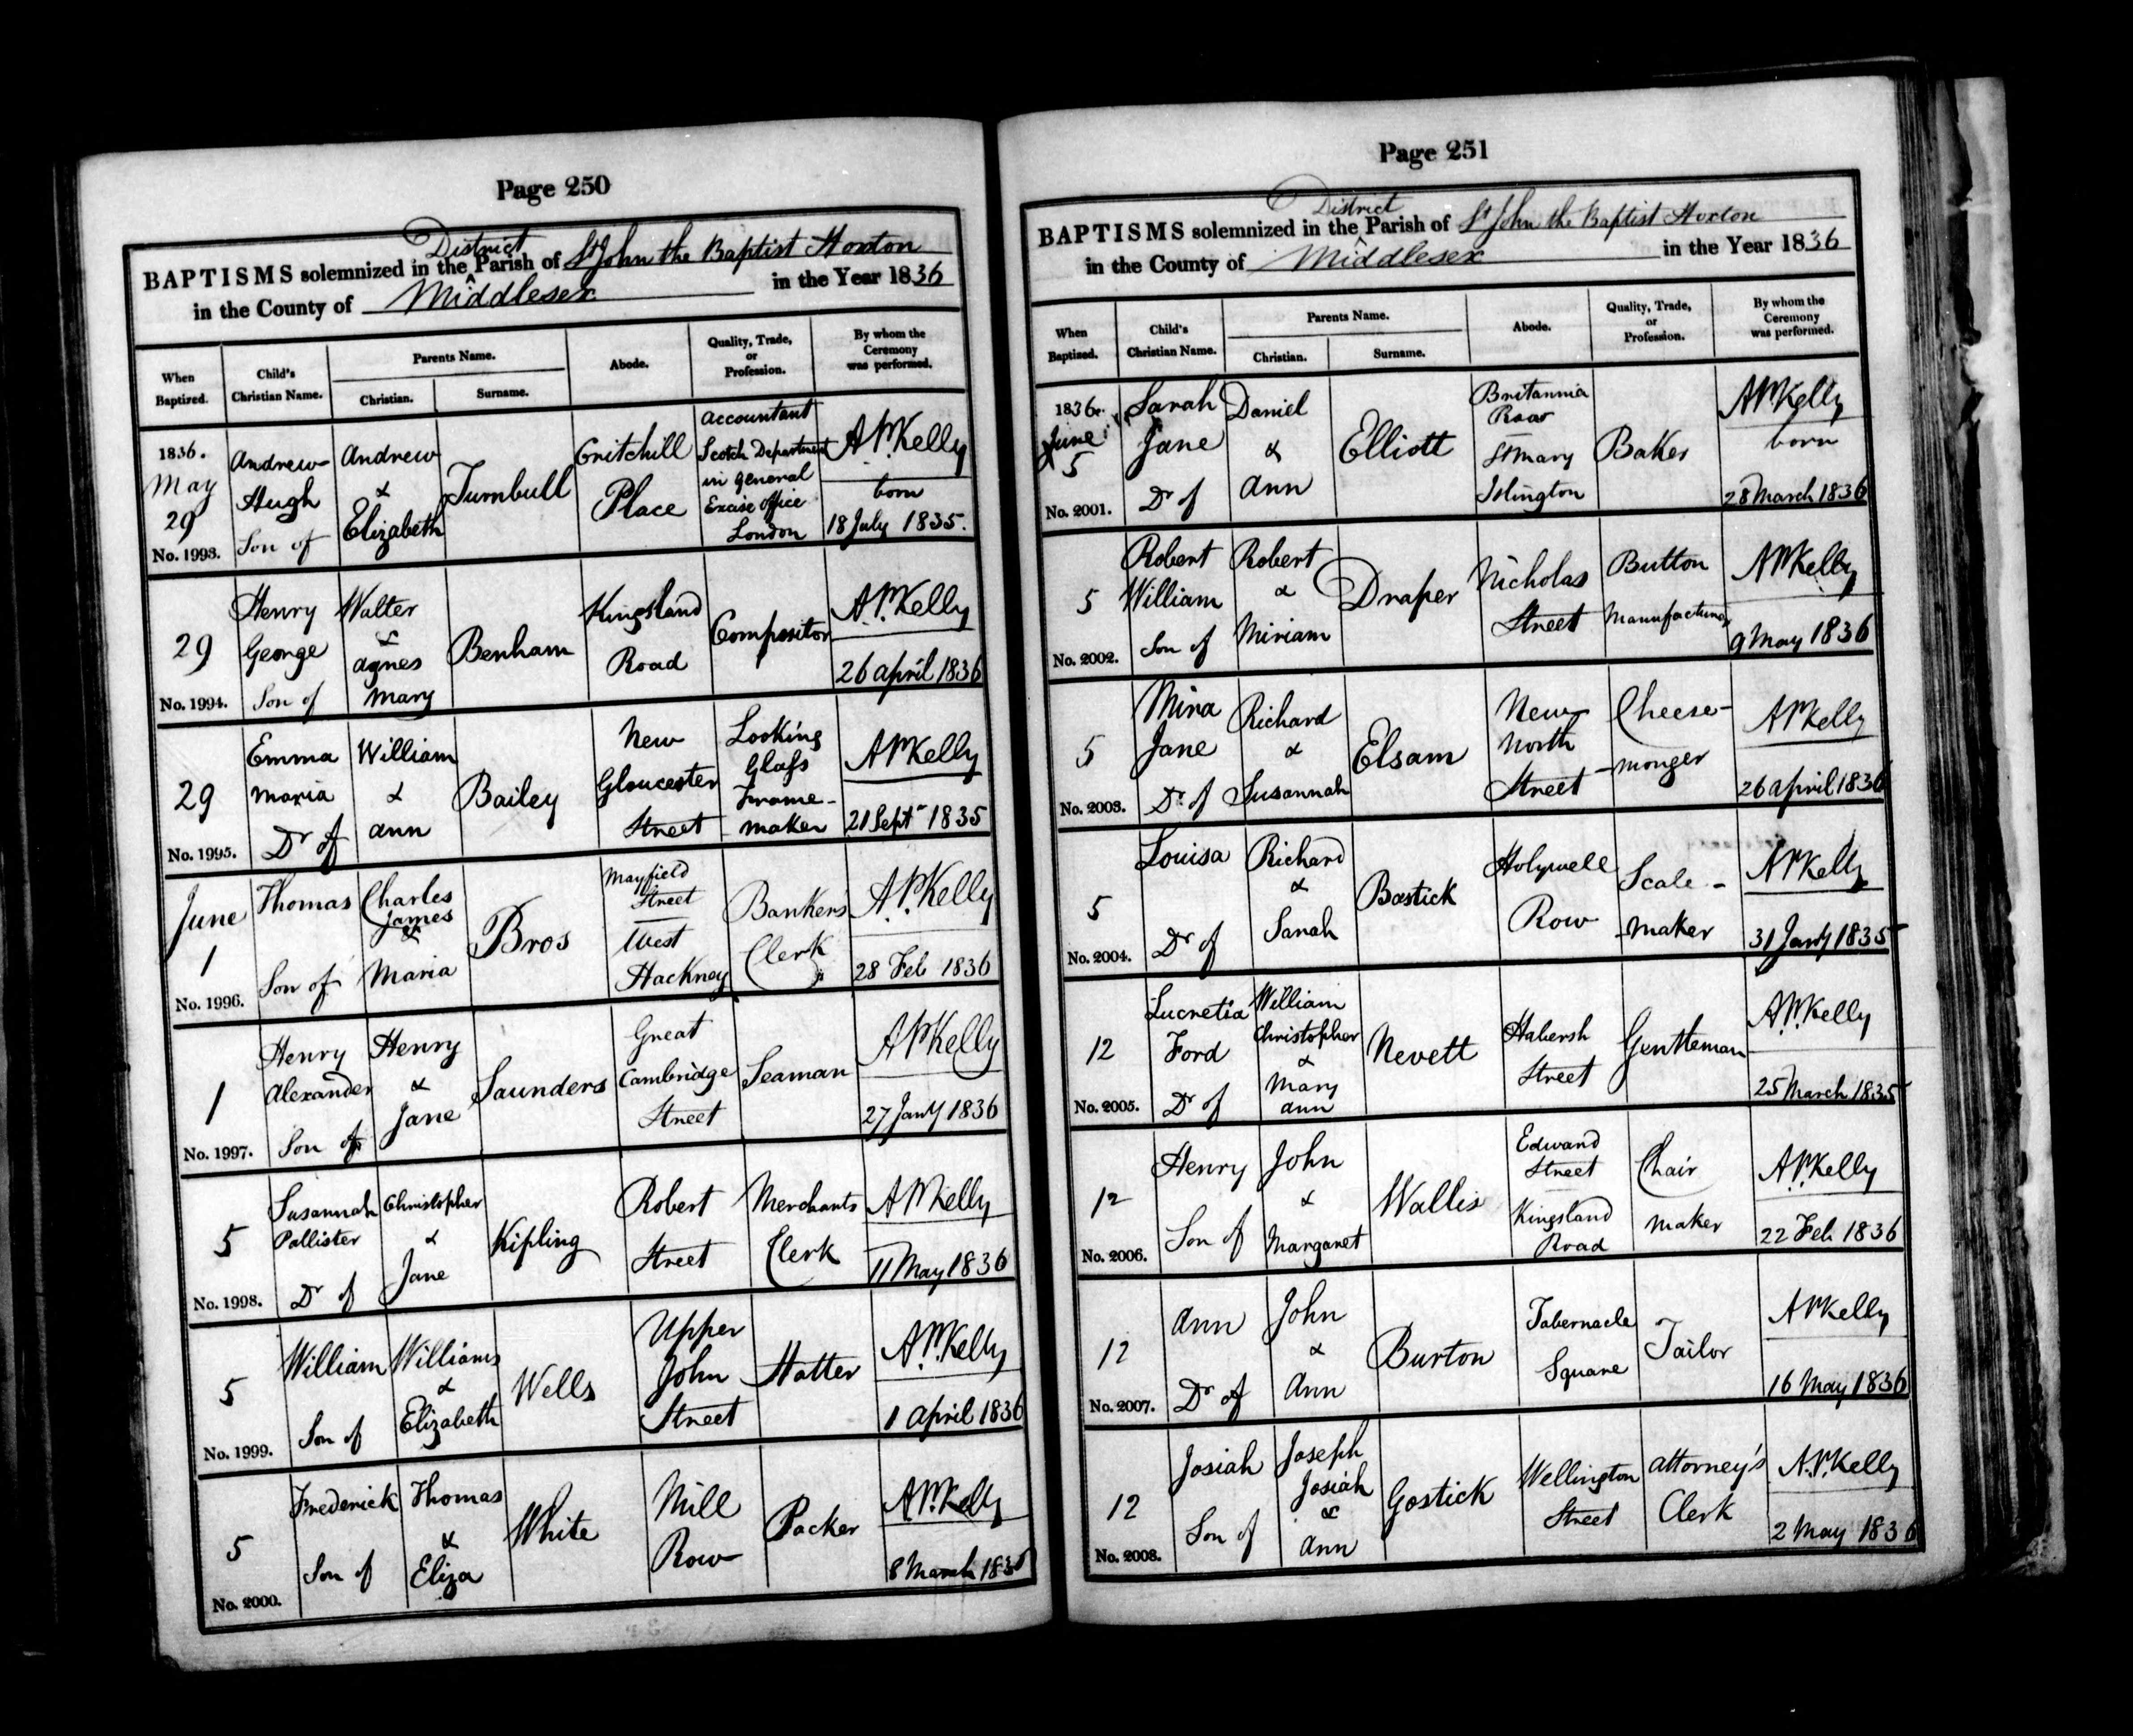 Page 250
District
BAPTISMS solemnized in the Parish of St John the Baptist Hoxton
in the County of Middlesex in the Year 1836
When Baptized.
Child's Christian Name.
Parents Name.
Christian.
Surname.
Abode.
Quality, Trade, or Profession.
By whom the Ceremony was performed.
1836.
May
29
No. 1993.
Andrew
Hugh
Son of
Andrew
&
Elizabeth
Turnbull
Critchill
Place
Accountant
Scotch Department
in General
Excise office
London
A.P. Kelly
born
18 July 1835.
29
No. 1994.
Henry
George
Son of
Walter
&
Agnes
Mary
Benham
Kingsland
Road
Compositor
A.P. Kelly
26 April 1836
29
No. 1995.
Emma
Maria
Dr of
William
&
Ann
Bailey
New
Gloucester
Street
Looking
Glass
Frame-
maker
A.P. Kelly
21 Sept 1835
June
1
No. 1996.
Thomas
Son of
Charles
James
&
Maria
Bros
Mayfield
Street
West
Hackney
Bankers
Clerk
A.P. Kelly
28 Feb 1836
1
No. 1997.
Henry
Alexander
Son of
Henry
&
Jane
Saunders
Great
Cambridge
Street
Seaman
A.P. Kelly
27 Jany 1836
5
No. 1998.
Susannah
Pallister
Dr of
Christopher
&
Jane
Kipling
Robert
Street
Merchants
Clerk
A.P. Kelly
11 May 1836
5
No. 1999.
William
Son of
William
&
Elizabeth
Wells
Upper
John
Street
Hatter
A.P. Kelly
1 April 1836
5
No. 2000.
Frederick
Son of
Thomas
&
Eliza
White
Mill
Row
Packer
A.P. Kelly
8 March 1835
Page 251
District
BAPTISMS solemnized in the Parish of St John the Baptist Hoxton
in the County of Middlesex in the Year 1836
When Baptized.
Child's Christian Name.
Parents Name.
Christian.
Surname.
Abode.
Quality, Trade, or Profession.
By whom the Ceremony was performed.
1836.
June
5
No. 2001.
Sarah
Jane
Dr of
Daniel
&
Ann
Elliott
Britannia
Row
St Mary
Islington
Baker
A.P. Kelly
born
28 March 1836
5
No. 2002.
Robert
William
Son of
Robert
&
Miriam
Draper
Nicholas
Street
Button
Manufacturer
A.P. Kelly
9 May 1836
5
No. 2003.
Mina
Jane
Dr of
Richard
&
Susannah
Elsam
New
North
Street
Cheese-
-monger
A.P. Kelly
26 April 1836
5
No. 2004.
Louisa
Dr of
Richard
&
Sarah
Bostick
Holywell
Row
Scale-
-maker
A.P. Kelly
31 Jany 1835
12
No. 2005.
Lucretia
Ford
Dr of
William
Christopher
&
Mary
Ann
Nevett
Habersh
Street
Gentleman
A.P. Kelly
25 March 1835
12
No. 2006.
Henry
Son of
John
&
Margaret
Wallis
Edward
Street
Kingsland
Road
Chair
maker
A.P. Kelly
22 Feb 1836
12
No. 2007.
Ann
Dr of
John
&
Ann
Burton
Tabernacle
Square
Tailor
A.P. Kelly
16 May 1836
12
No. 2008.
Josiah
Son of
Joseph
Josiah
&
Ann
Gostick
Wellington
Street
Attorney's
Clerk
A.P. Kelly
2 May 1836